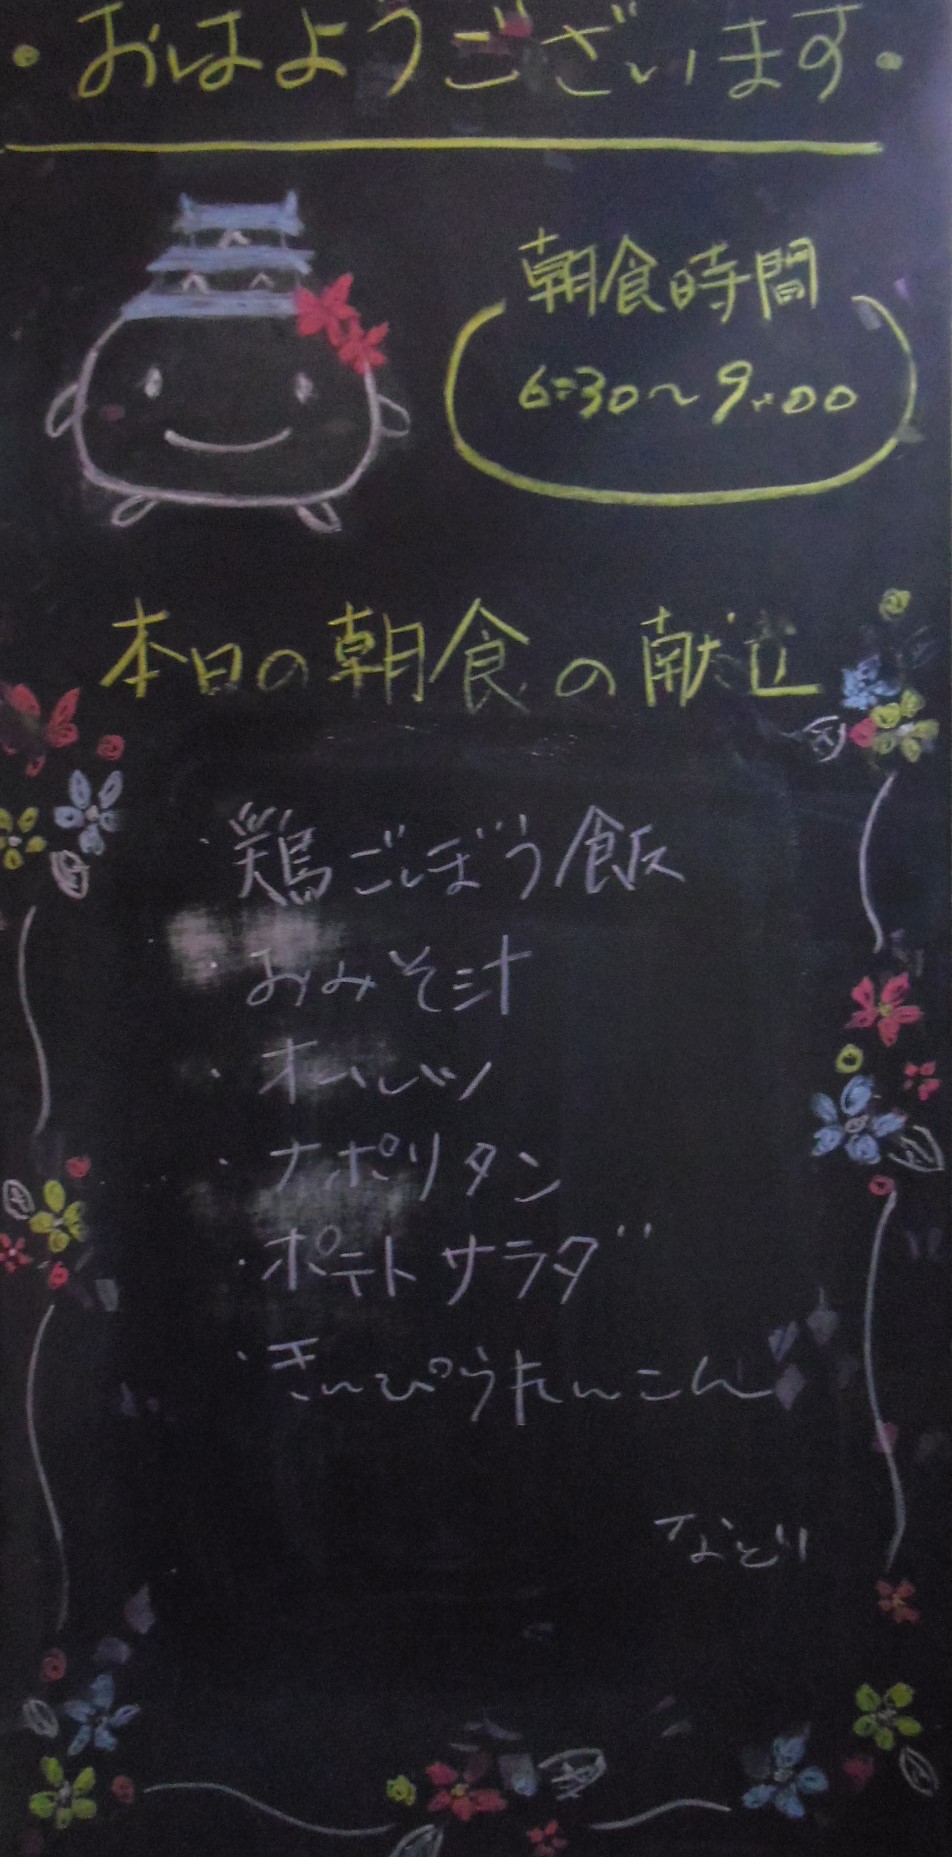 ・おはようございます・
朝食時間
6:30〜9:00
本日の朝食の献立
・鶏ごぼう飯
・おみそ汁
・オムレツ
・ナポリタン
・ポテトサラダ
・きんぴられんこん
など